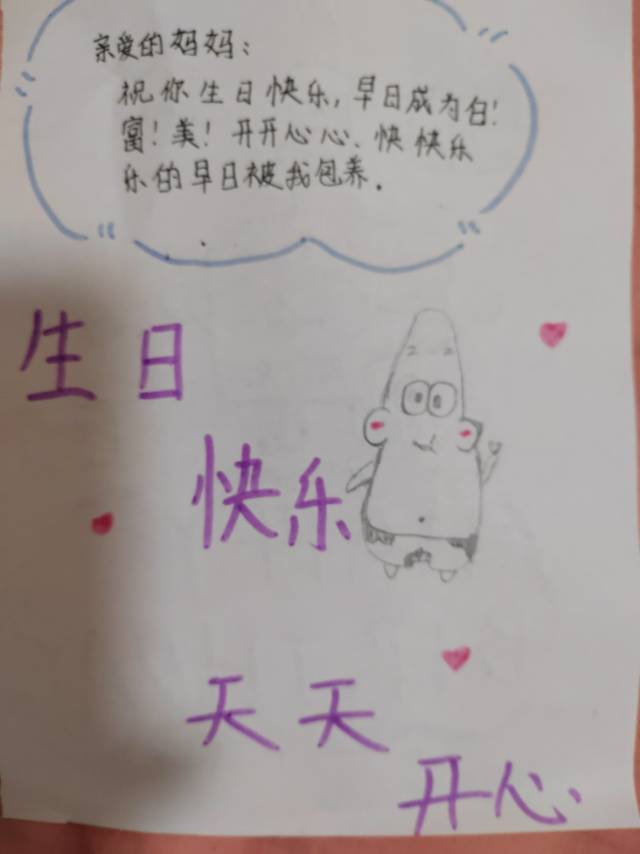 亲爱的妈妈：
祝你生日快乐，早日成为白！
富！美！开开心心、快快乐
乐的早日被我包养．
生日
快乐
天天
开心